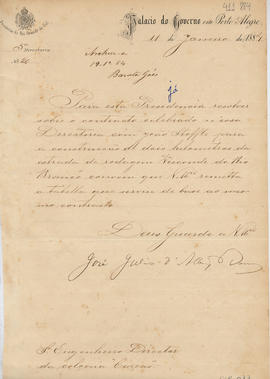 411 884
Palacio do Governo em Porto Alegre,
11 de Janeiro de 1884
Provincia do Rio Grande do Sul
Directoria
Archive-se
19.1º 84
Barata Góes
já
Para esta Presidencia resolver
sobre o contracto celebrado n'essa
Directoria com João Hoffle para
a construcção de dois kilometros da
estrada de rodagem Visconde do Rio
Branco convem que V.Mce remetta
a tabella que serviu de base ao mes
mo contracto.
Deus Guarde a V.Mce
José Julio d'Alb. Barros
Sr. Engenheiro Director
da colonia Caxias